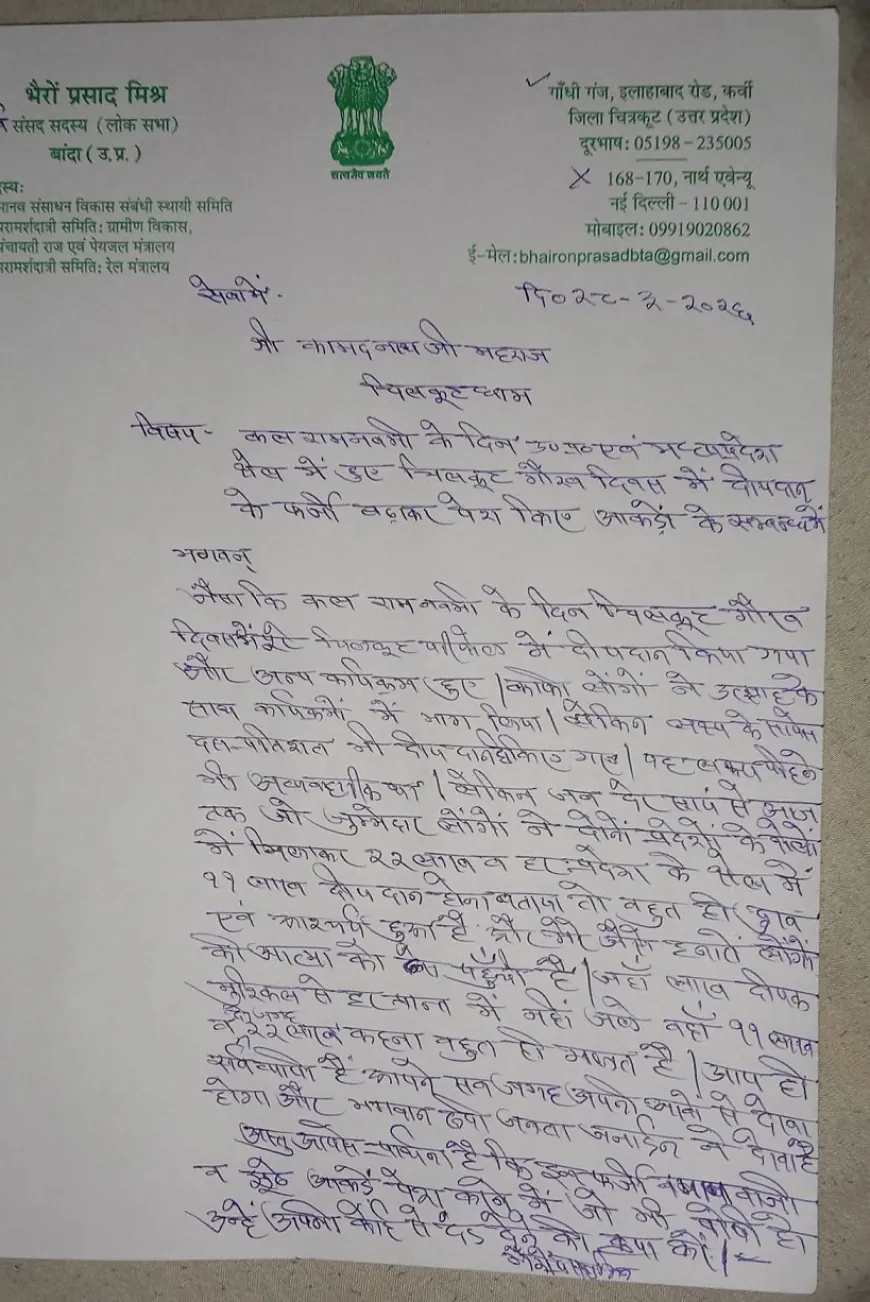 भैरों प्रसाद मिश्र
संसद सदस्य (लोक सभा)
बांदा (उ.प्र.)
स्यः
मानव संसाधन विकास संबंधी स्थायी समिति
परामर्शदात्री समिति: ग्रामीण विकास,
पंचायती राज एवं पेयजल मंत्रालय
परामर्शदात्री समिति: रेल मंत्रालय
सत्यमेव जयते
गाँधी गंज, इलाहाबाद रोड, कर्वी
जिला चित्रकूट (उत्तर प्रदेश)
दूरभाष: 05198-235005
168-170, नार्थ एवेन्यू
नई दिल्ली-110 001
मोबाइल: 09919020862
ई-मेल:bhaironprasadbta@gmail.com
सेवामें-
दि० २८-३-२०२६
श्री कामदनाथ जी महराज
चित्रकूटधाम
विषय- कल रामनवमी के दिन उ०प्र० एवं मध्यप्रदेश
क्षेत्र में हुए चित्रकूट गौरव दिवस में दीपदान
के फर्जी बढ़ाकर पेश किए आकड़ों के सम्बन्ध में
भगवन्
जैसा कि कल रामनवमी के दिन चित्रकूट गौरव
दिवस में चित्रकूट परिक्षेत्र में दीपदान किया गया
और अन्य कार्यक्रम हुए। काफी लोगों ने उत्साह के
साथ कार्यक्रमों में भाग लिया। लेकिन लक्ष्य के सापेक्ष
दस प्रतिशत भी दीपदान नहीं किए गए। यह लक्ष्य पहले
भी अव्यवहारिक था। लेकिन जब देर सायं से आज
तक जो जुम्मेदार लोगों ने दोनों प्रदेशों के क्षेत्रों
में मिलाकर २२ लाख व हर प्रदेश के क्षेत्र में
११ लाख दीपदान होना बताया तो बहुत ही दुःख
एवं आश्चर्य हुआ है और मेरी जैसे हजारों लोगों
की आत्मा को पहुँची है। जहाँ लाख दीपक
मुश्किल से हर प्रान्त में नहीं जले वहाँ ११ लाख
व २२ लाख कहना बहुत ही गलत है। आप ही
सर्वव्यापी हैं आपने सब जगह अपनी आंखों से देखा
होगा और भगवान रूपी जनता जनार्दन ने देखा है
अस्तु आपसे प्रार्थना है कि इस फर्जी
व झूठे आकड़े पेश करने में जो भी दोषी हो
उन्हें अपनी ओर से दंड देने की कृपा करें।